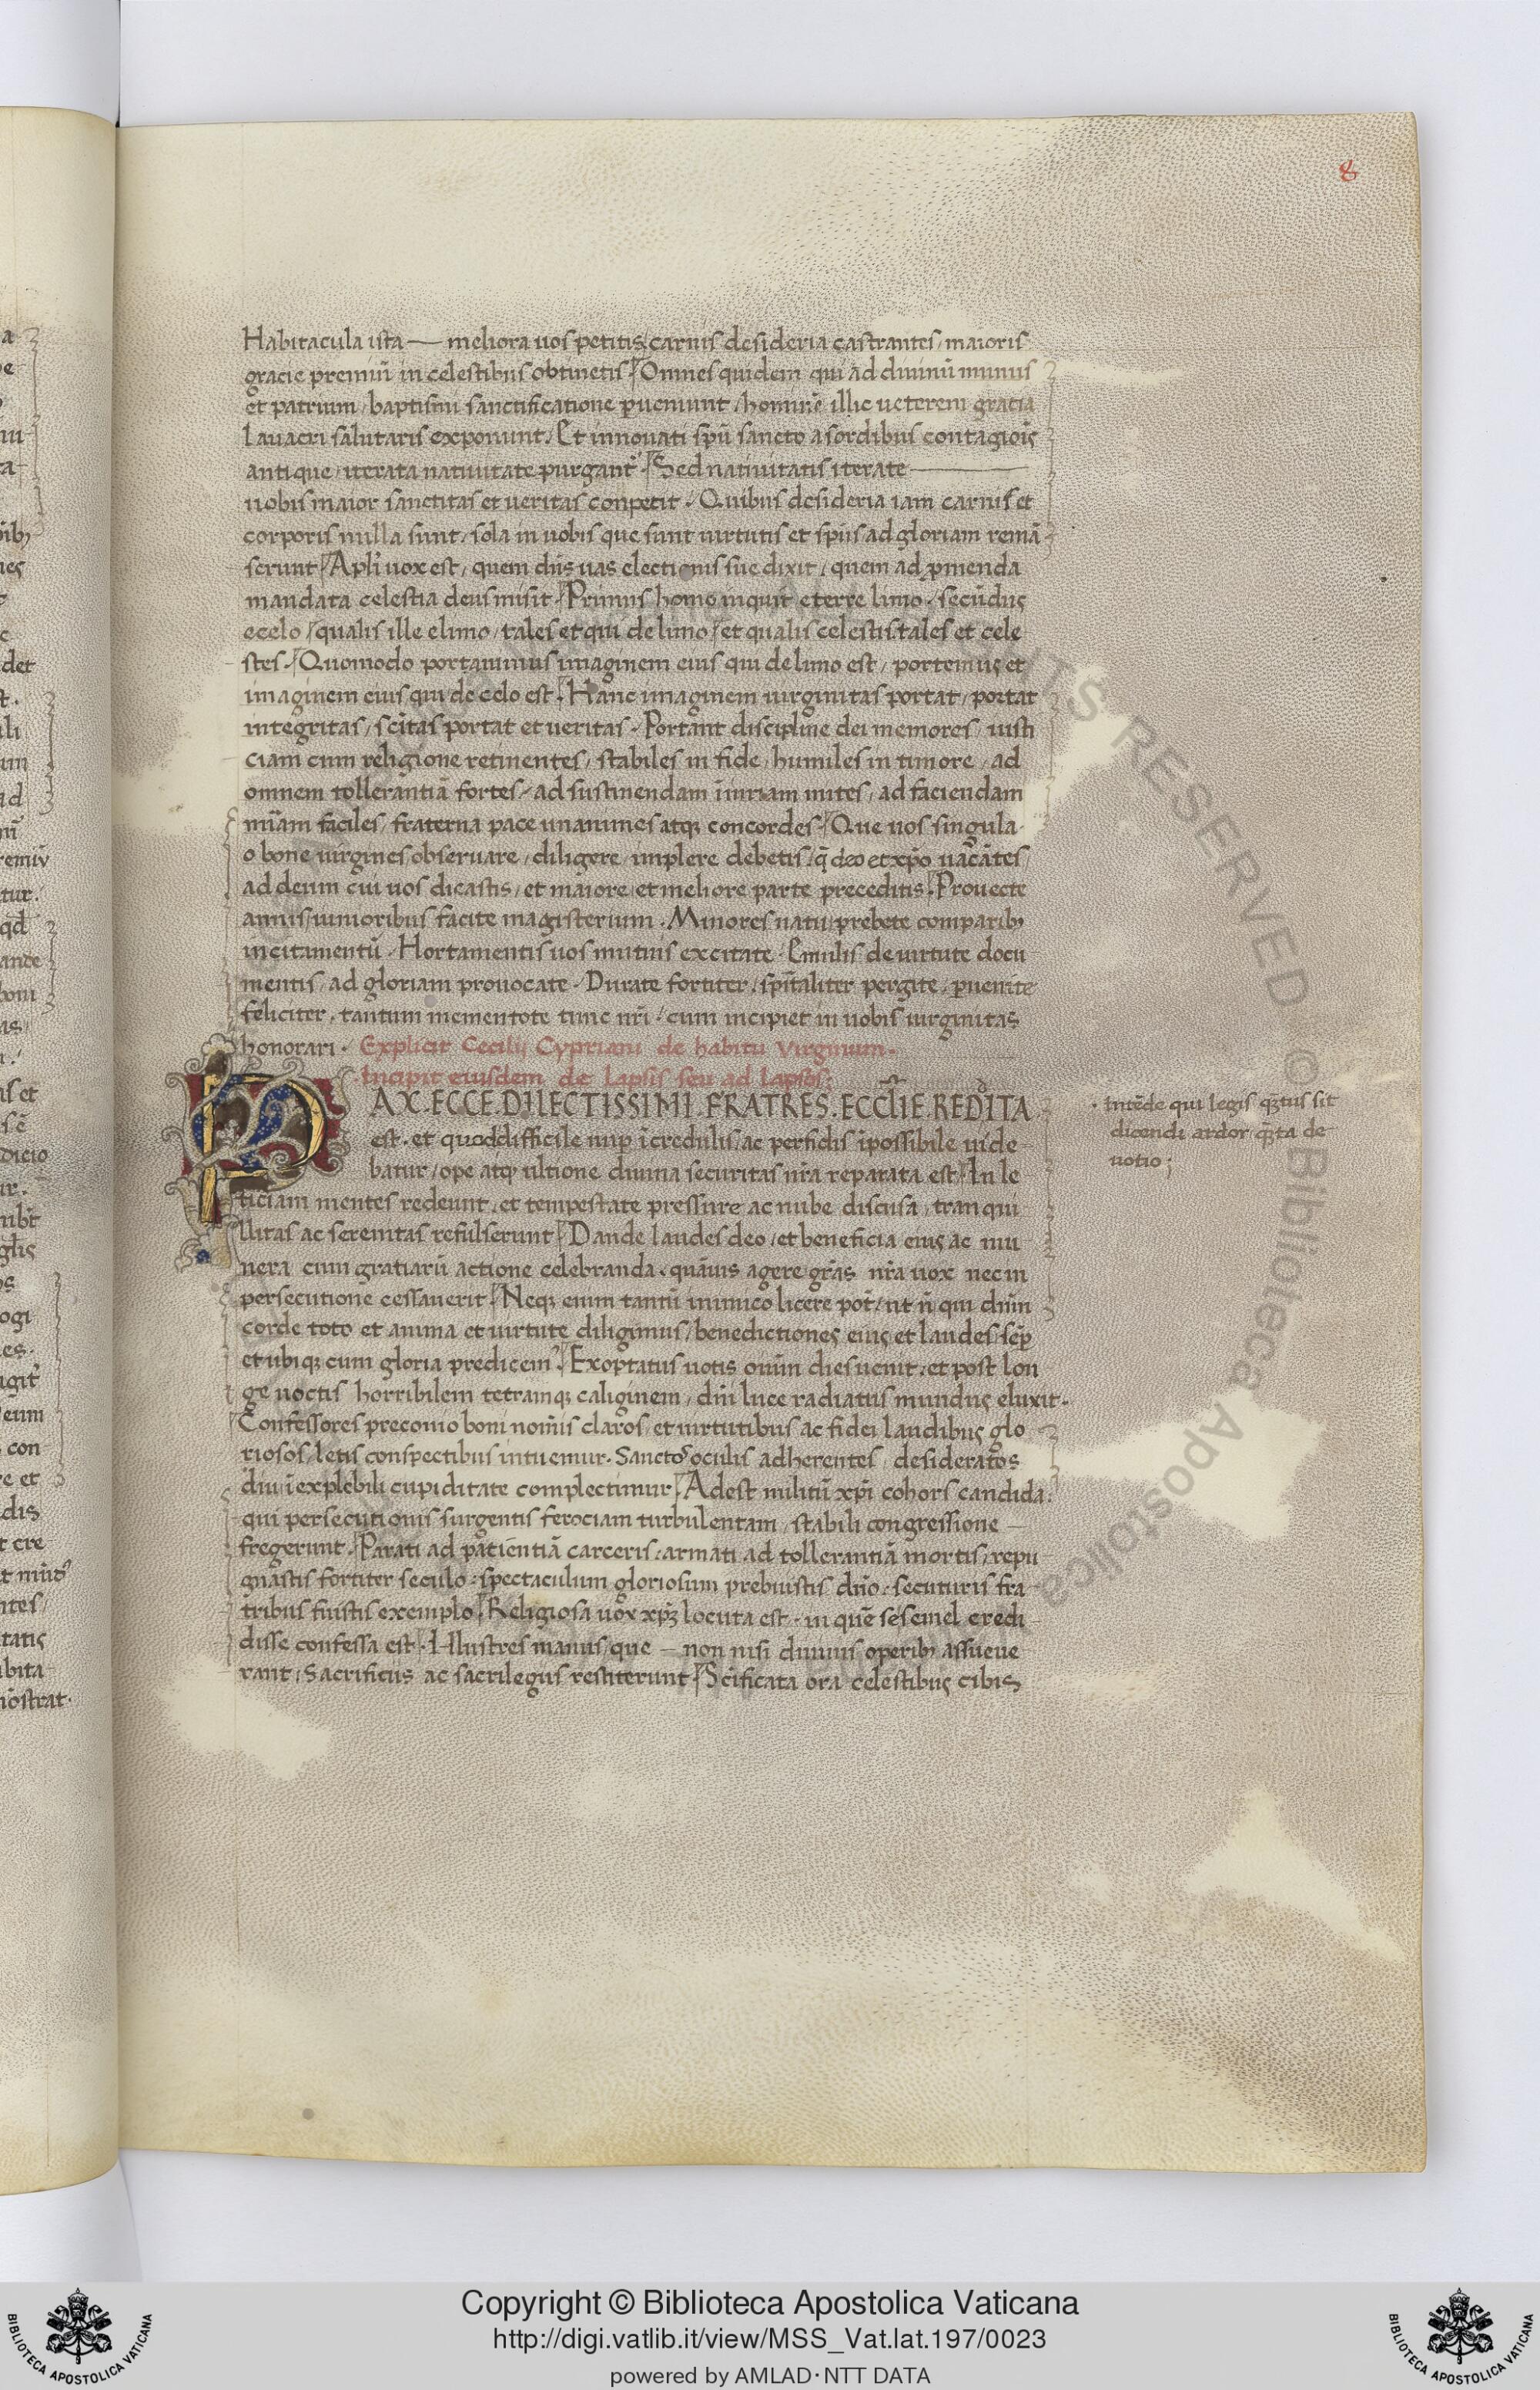 8
Habitacula ista — meliora uos petitis, carnis desideria castrantes, maioris
gracie premiū in celestibus obtinetis. Omnes quidem qui ad diuinū munus
et patrium, baptismi sanctificatione ꝑueniunt, hominē illic ueterem gratia
Lauacri salutaris exponunt. Et innouati spū sancto a sordibus contagiōis
antique, iterata natiuitate purgant᷑. Sed natiuitatis iterate —
uobis maior sanctitas et ueritas conpetit. Quibus desideria iam carnis et
corporis nulla sunt, sola in uobis que sunt uirtutis et spūs ad gloriam remā
serunt. Apl̄i uox est, quem dn̄s uas electionis sue dixit, quem ad ꝓmenda
mandata celestia deus misit. Primus homo inquit e terre limo, secūdus
e celo, qualis ille e limo, tales et qui de limo, et qualis celestis, tales et cele
stes. Quomodo portauimus imaginem eius qui de limo est, portemus et
imaginem eius qui de celo est. Hanc imaginem uirginitas portat, portat
integritas, scītas portat et ueritas. Portant discipline dei memores, iusti
ciam cum religione retinentes, stabiles in fide, humiles in timore, ad
omnem tollerantiā fortes, ad sustinendam īiuriam mites, ad faciendam
mīam faciles, fraterna pace unanimes atqꝫ concordes. Que uos singula
o bone uirgines obseruare, diligere, implere debetis, q̄ deo et xp̄o uacātes
ad deum cui uos dicastis, et maiore et meliore parte preceditis. Prouecte
annis iunioribus facite magisterium. Minores natu prebete comparibꝫ
incitamentū. Hortamentis uos mutuis excitate. Emulis de uirtute docu
mentis, ad gloriam prouocate. Durate fortiter, spītaliter pergite, ꝑuenite
feliciter, tantum mementote tunc nr̄i, cum incipiet in uobis uirginitas
honorari. Explicit Cecilij Cypriani de habitu Virginum.
Incipit eiusdem de lapsis seu ad lapsos;
PAX. ECCE. DILECTISSIMI. FRATRES. ECCL̄IE. REDDITA
est. et quod difficile nuꝑ īcredulis, ac perfidis īpossibile uide
batur, ope atqꝫ ultione diuina securitas nr̄a reparata est. In le
ticiam mentes redeunt, et tempestate pressure ac nube discusa, tranqui
llitas ac serenitas refulserunt. Dande laudes deo, et beneficia eius ac mu
nera cum gratiarū actione celebranda. quāuis agere gr̄as nr̄a uox nec in
persecutione cessauerit. Neqꝫ enim tantū inimico licere pot̄, ut n̄ qui dn̄m
corde toto et anima et uirtute diligimus, benedictiones eius et laudes, seꝑ
et ubiqꝫ cum gloria predicem᷒. Exoptatus uotis oīum dies uenit, et post lon
ge noctis horribilem tetramqꝫ caliginem, dn̄i luce radiatus mundus eluxit.
Confessores preconio boni nomīis claros, et uirtutibus ac fidei laudibus glo
riosos, letis conspectibus intuemur. Sanctos oculis adherentes, desideratos
diu īexplebili cupiditate complectimur. Adest militū xp̄i cohors candida,
qui persecutionis surgentis ferociam turbulentam, stabili congressione —
fregerunt. Parati ad patientiā carceris, armati ad tollerantiā mortis, repu
gnastis fortiter seculo, spectaculum gloriosum prebuistis dn̄o, secuturis fra
tribus fuistis exemplo. Religiosa uox xp̄ꝫ locuta est, in quē se semel credi
disse confessa est. Illustres manus, que — non nisi diuinis operibꝫ assueue
rant, Sacrificiis ac sacrilegiis restiterunt. Scīficata ora celestibus cibis
Intēde qui legis qꝫ̄tus sit
dicendi ardor qꝫ̄ta de
uotio;
Copyright © Biblioteca Apostolica Vaticana
http://digi.vatlib.it/view/MSS_Vat.lat.197/0023
powered by AMLAD·NTT DATA
BIBLIOTECA APOSTOLICA VATICANA
BIBLIOTECA APOSTOLICA VATICANA